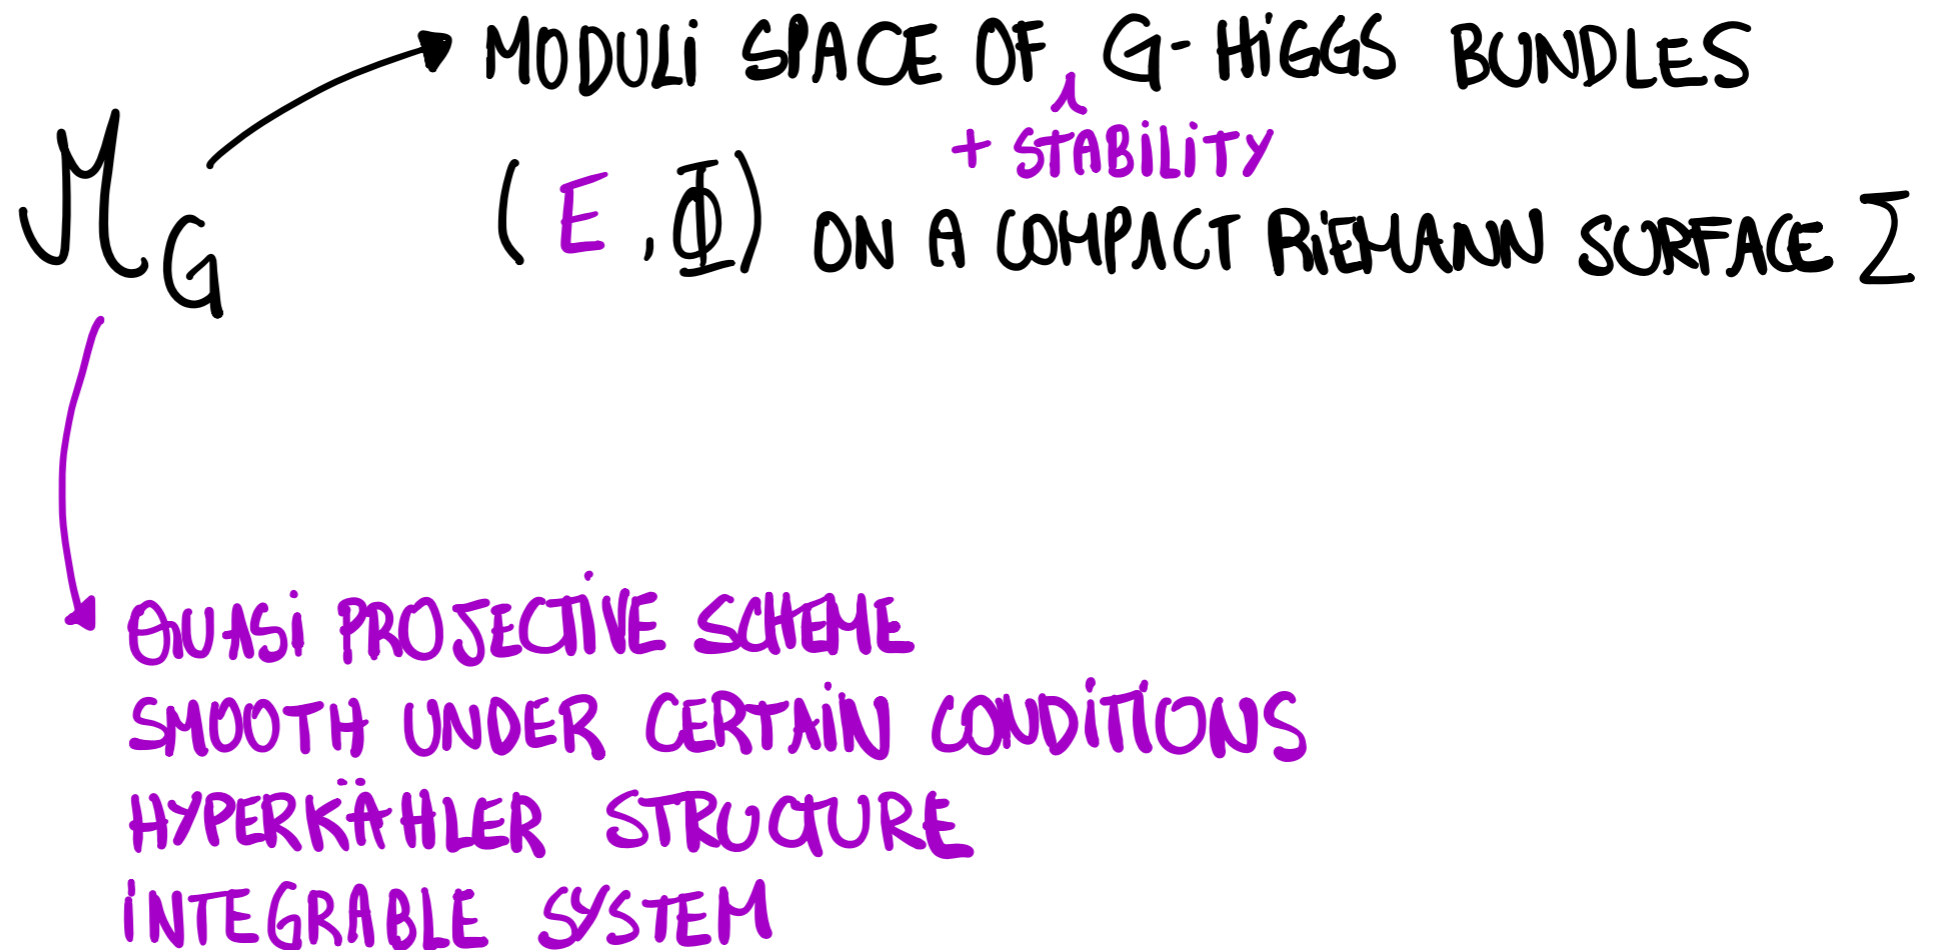 MODULi SPACE OF G-HiGGS BUNDLES
+ STABiLiTY
M_G
(E, Φ) ON A COMPACT RiEMANN SURFACE Σ
QUASi PROJECTiVE SCHEME
SMOOTH UNDER CERTAiN CONDiTiONS
HYPERKÄHLER STRUCTURE
iNTEGRABLE SYSTEM